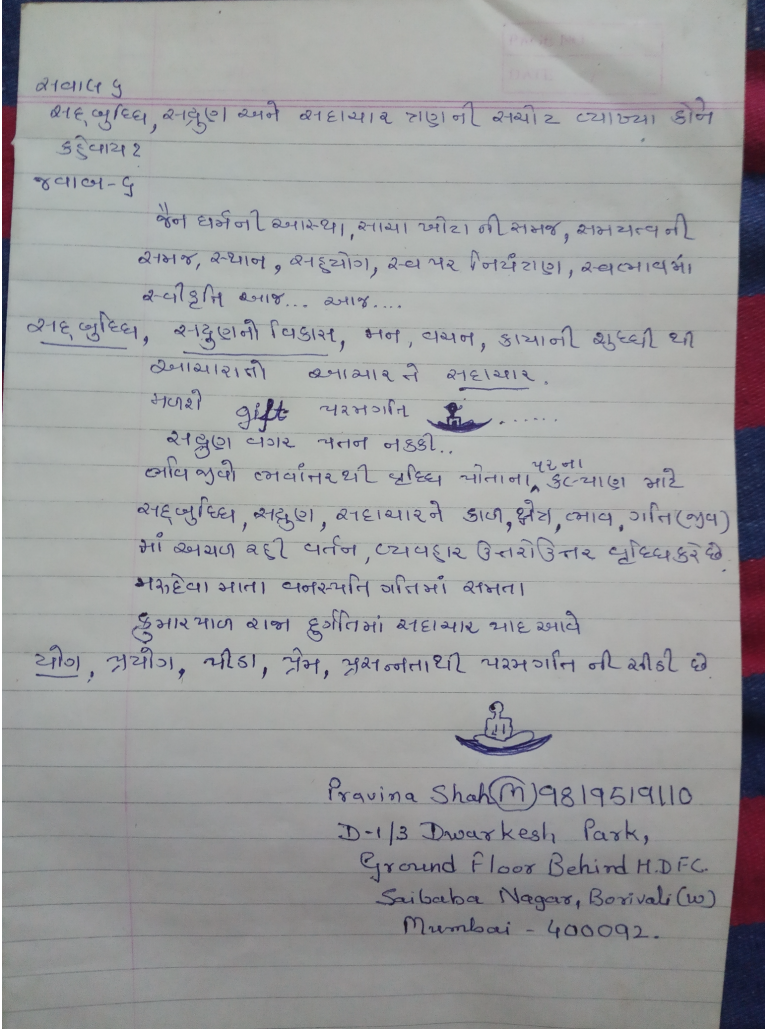 સવાલ ૬
સદ્દબુધ્ધિ, સદ્ગુણ અને સદાચાર ત્રણની સચોટ વ્યાખ્યા કોને
કહેવાય?
જવાબ-૬
જૈન ધર્મની આસ્થા, સાચા ખોટા ની સમજ, સમયત્વની
સમજ, સ્થાન, સહયોગ, સ્વ પર નિયંત્રણ, સ્વભાવમાં
સ્વીકૃતિ આજ... આજ....
સદ્દબુધ્ધિ, સદ્ગુણનો વિકાસ, મન, વચન, કાયાની શુધ્ધી થી
આચારાતો આચાર તે સદાચાર.
મળશે gift પરમગતિ ......
સદ્ગુણ વગર પતન નક્કી..
ભવિ જીવો ભવાંતરથી વૃધ્ધિ પોતાના, પરના કલ્યાણ માટે
સદ્દબુધ્ધિ, સદ્ગુણ, સદાચારને કાળ, ક્ષેત્ર, ભાવ, ગતિ(જીવ)
માં અચળ રહી વર્તન, વ્યવહાર ઉત્તરોઉત્તર વૃધ્ધિ કરે છે.
મરુદેવા માતા વનસ્પતિ ગતિમાં સમતા
કુમારપાળ રાજા દુર્ગતિમાં સદાચાર યાદ આવે
યોગ, પ્રયોગ, પીડા, પ્રેમ, પ્રસન્નતાથી પરમગતિ ની સીડી છે.
Pravina Shah (M) 9819519110
D-1/3 Dwarkesh Park,
Ground Floor Behind H.D.F.C.
Saibaba Nagar, Borivali (w)
Mumbai - 400092.